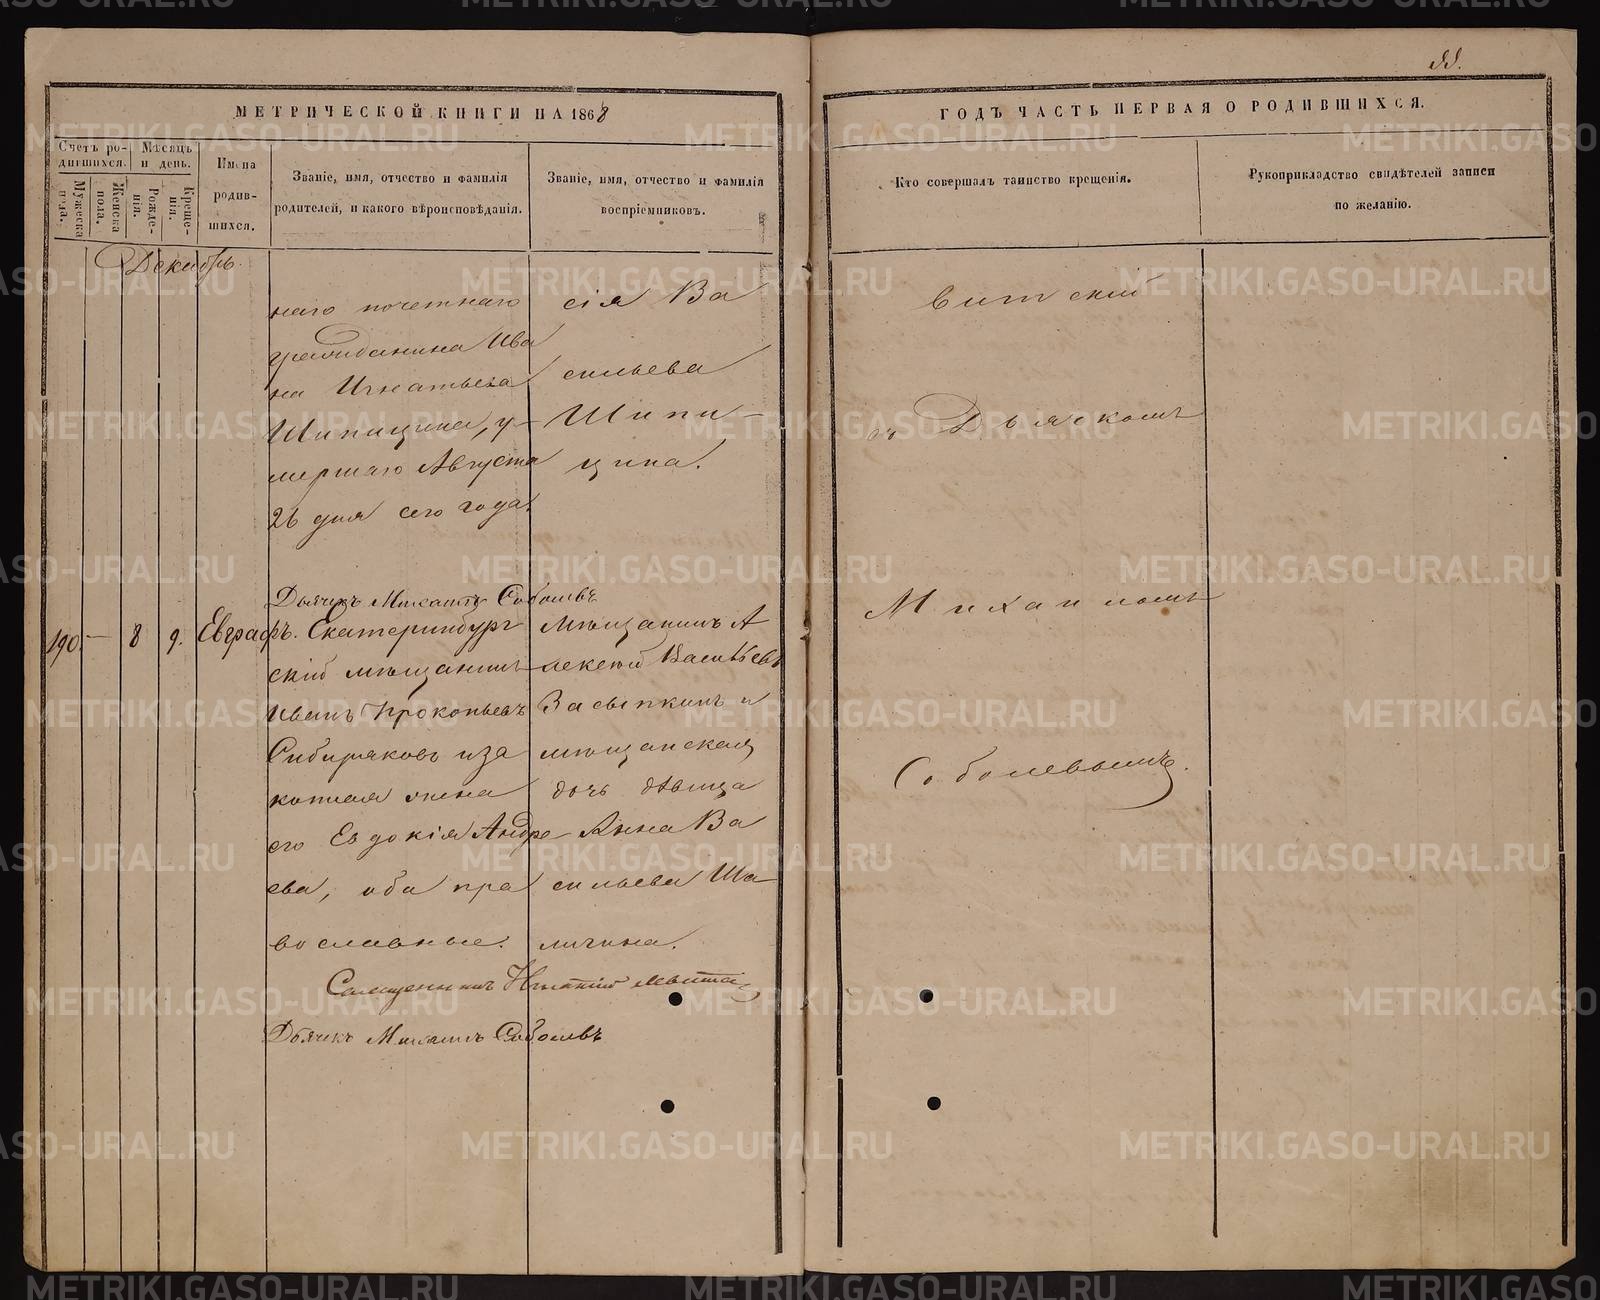 55.
МЕТРИЧЕСКОЙ КНИГИ НА 1868
ГОДЪ ЧАСТЬ ПЕРВАЯ О РОДИВШИХСЯ.
Счетъ ро-
дившихся.
Мужеска
пола.
Женска
пола.
Мѣсяцъ
и день.
Рожде-
нія.
Креще-
нія.
Имена
родив-
шихся.
Званіе, имя, отчество и фамилія
родителей, и какого вѣроисповѣданія.
Званіе, имя, отчество и фамилія
воспріемниковъ.
Кто совершалъ таинство крещенія.
Рукоприкладство свидѣтелей записи
по желанію.
Декабрь.
наго почетнаго
гражданина Ива
на Игнатьева
Шипицина, у-
мершаго Августа
26 дня сего года.
сія Ва
сильева
Шипи-
цина.
витскій
съ Дьячкомъ
Михаиломъ
Соболевымъ.
Дьячекъ Михаилъ Соболевъ
190. — 8 9. Евграфъ.
Екатеринбург
скій мѣщанинъ
Иванъ Прокопьевъ
Сибиряковъ и за
конная жена
его Евдокія Андре
ева, оба пра
вославные.
Мѣщанинъ А
лексѣй Василѣевъ
Засыпкинъ и
мѣщанская
дочь дѣвица
Анна Ва
сильева Ша-
личина.
Священникъ Игнатій Левитскій
Дьячекъ Михаилъ Соболевъ
METRIKI.GASO-URAL.RU